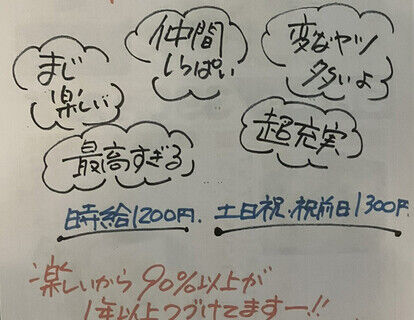 まじ
楽しい
仲間
いっぱい
変なヤツ
多いよ
最高すぎる
超充実
時給1200円. 土日祝、祝前日1300円
楽しいから90%以上が
1年以上つづけてますー!!